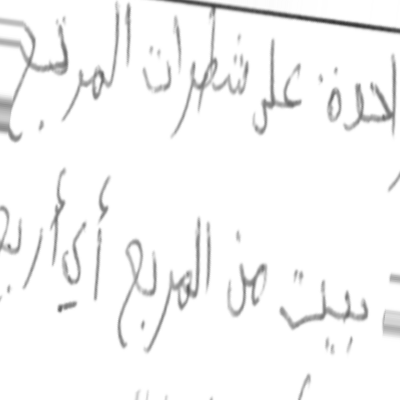 احدة على شطرات المربع
بيت من المربع أي أربع